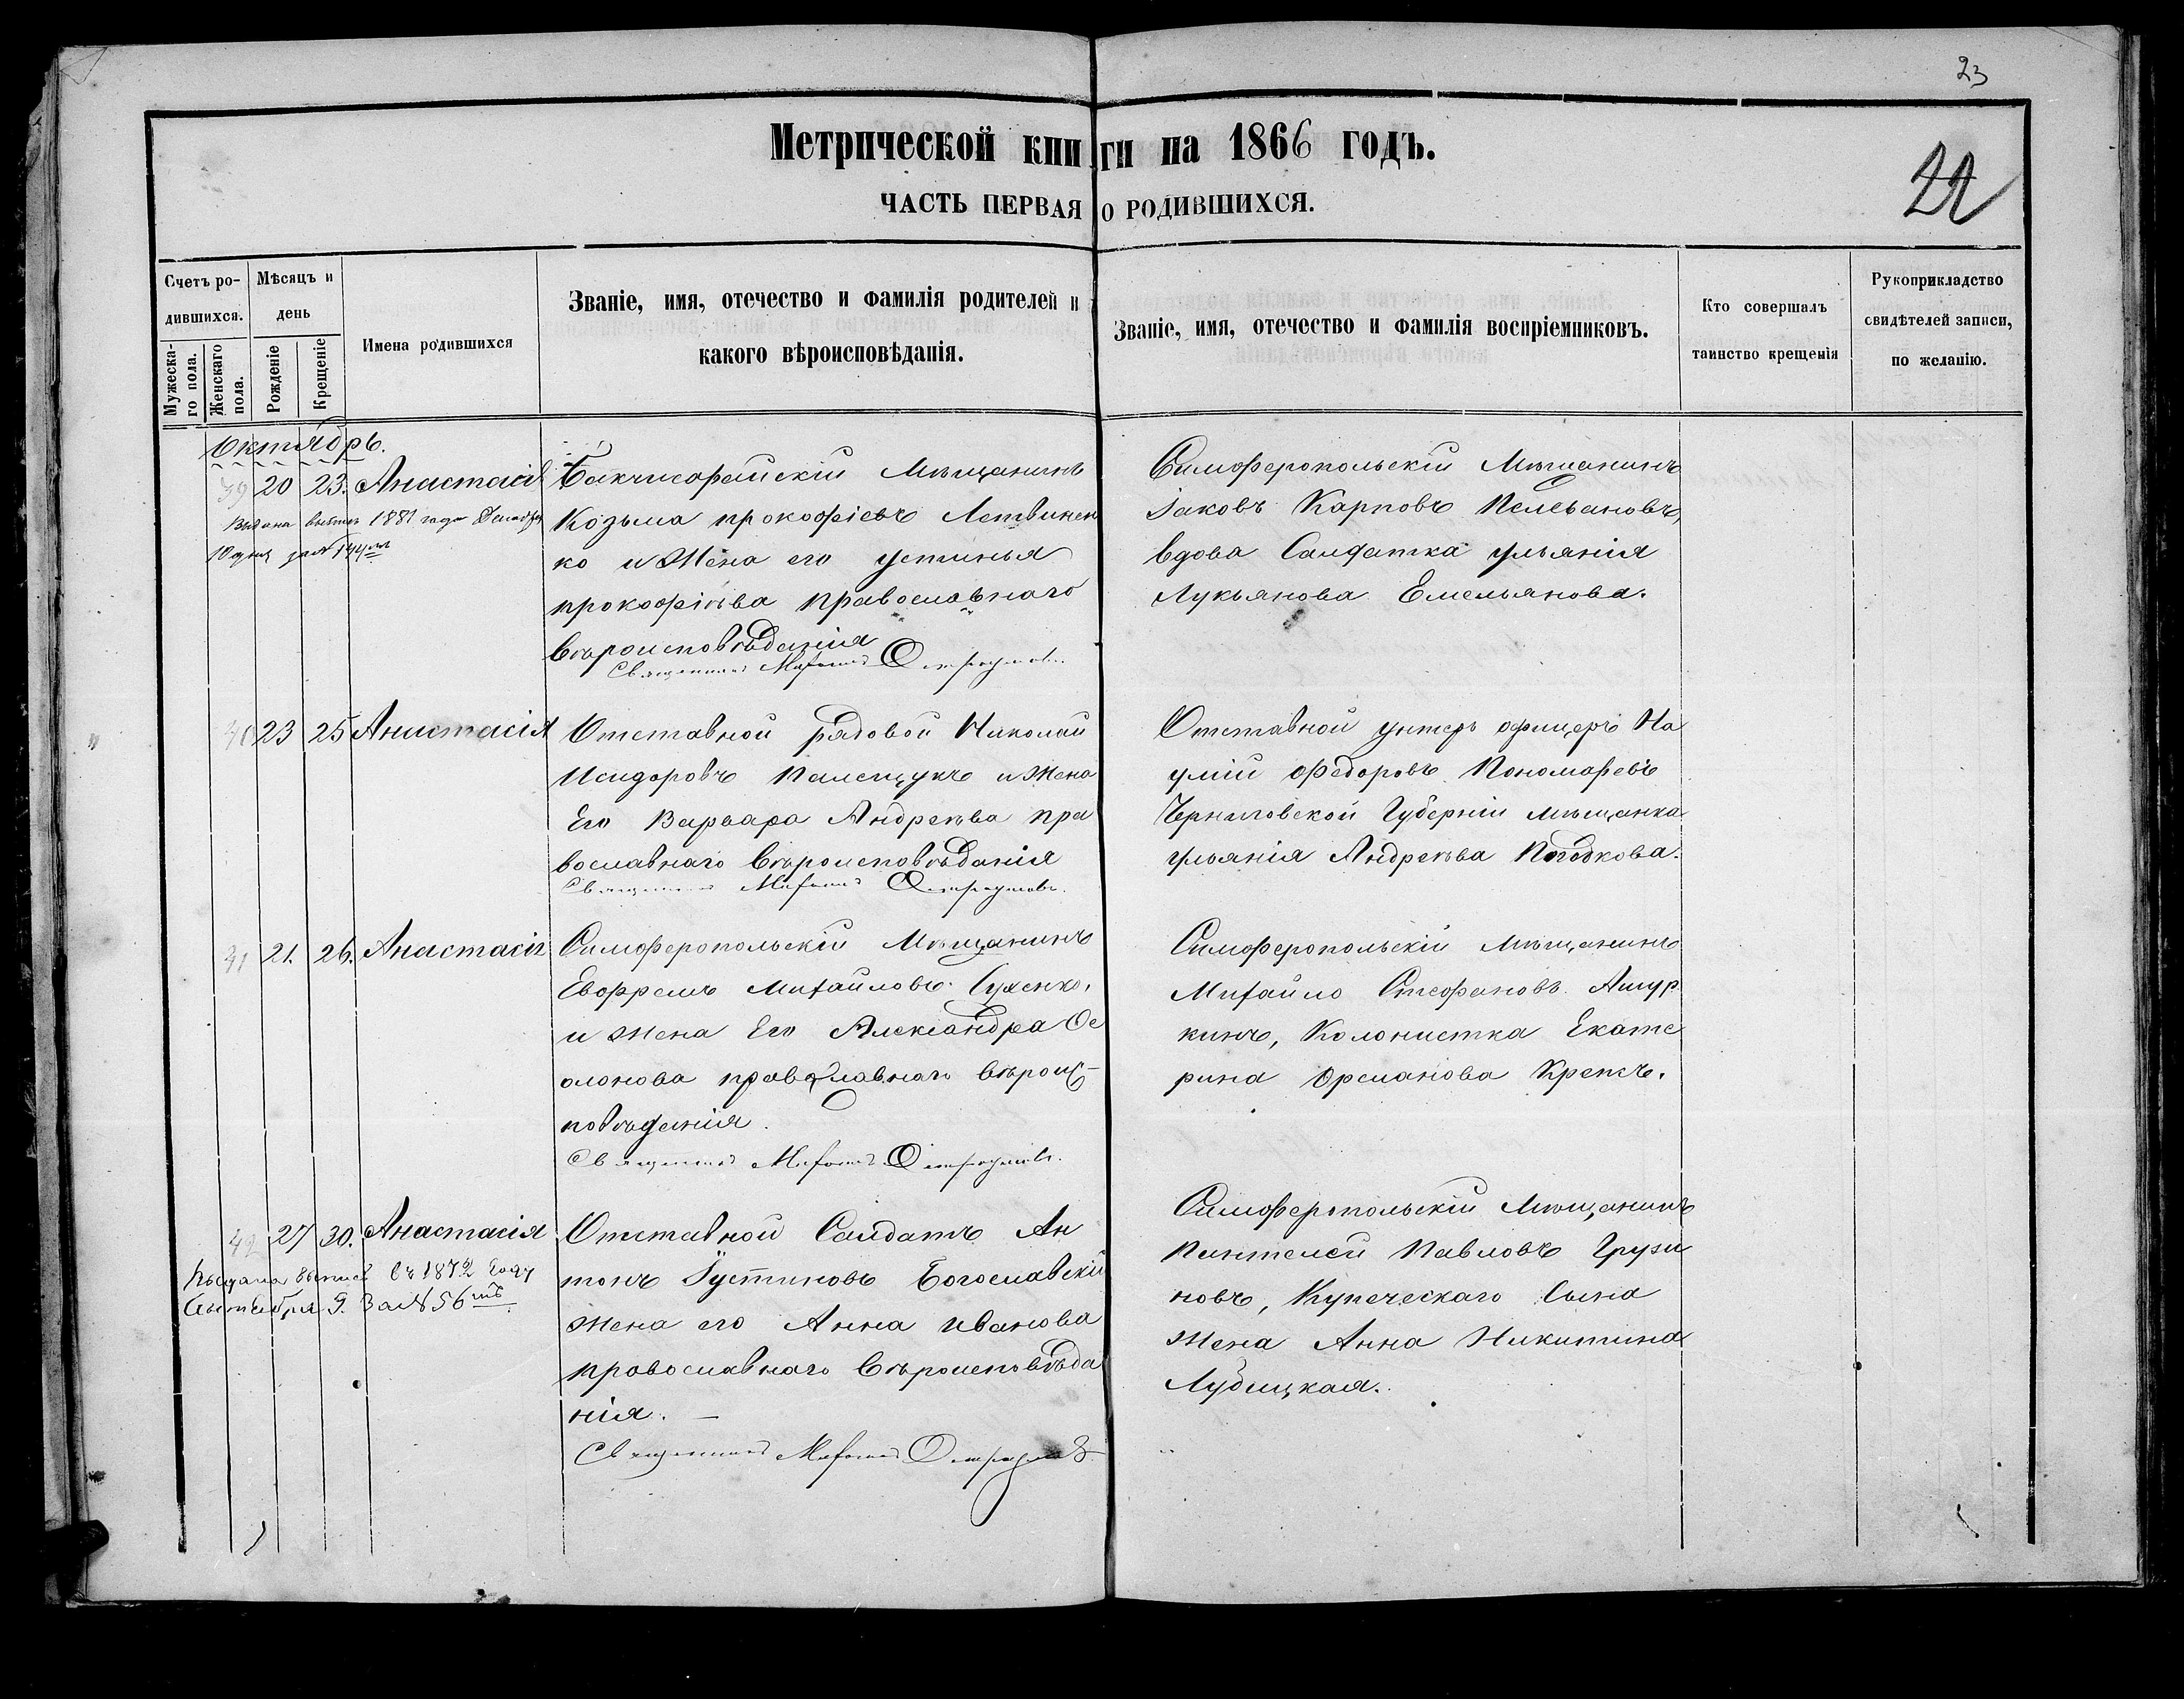 23
Метрической книги на 1866 годъ.
22
ЧАСТЬ ПЕРВАЯ О РОДИВШИХСЯ.
Счетъ ро-
дившихся.
Мужеска-
го пола.
Женскаго
пола.
Мѣсяцъ и
день
Рожденіе
Крещеніе
Имена родившихся
Званіе, имя, отечество и фамилія родителей и
какого вѣроисповѣданія.
Званіе, имя, отечество и фамилія воспріемниковъ.
Кто совершалъ
таинство крещенія
Рукоприкладство
свидѣтелей записи,
по желанію.
Октябрь.
39 20 23. Анастасія
1881 года
Бакчисарайскій Мѣщанинъ
Козьма прокофіевъ Летвинен
ко и Жена его устинья
прокофіева православнаго
вѣроисповѣданія
Священникъ
Симферопольскій Мѣщанинъ
Іаковъ Карповъ
вдова Салдатка ульянія
Лукьянова Емельянова.
40 23 25 Анастасія
Отставной рядовой Николай
Исидоровъ Палещукъ и Жена
Его Варвара Андреева пра
вославнаго вѣроисповѣданія
Священникъ
Отставной унтеръ офицеръ На
умій Федоровъ Пономаревъ
Черниговской Губерніи мѣщанка
ульянія Андреева
41 21. 26. Анастасія
Симферопольскій Мѣщанинъ
Михайловъ Сухенко,
и жена Его Александра
православнаго вѣроис-
повѣданія.
Священникъ
Симферопольскій мѣщанинъ
Михайло Стефановъ Ашур
кинъ, Колонистка Екате
рина
42 27 30. Анастасія
Выдана выпись въ 1872 году
9. За № 56
Отставной Салдатъ Ан
тонъ Іустиновъ Богославскій
жена его Анна Иванова
православнаго вѣроисповѣда
нія. —
Священникъ
Симферопольскій Мѣщанинъ
Пантелей Павловъ Грузи
новъ, Купеческаго Сына
жена Анна Никитина
Лубицкая.